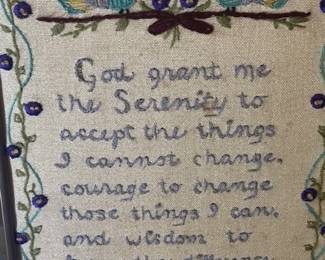 God grant me
the Serenity to
accept the things
I cannot change,
courage to change
those things I can,
and wisdom to
know the difference